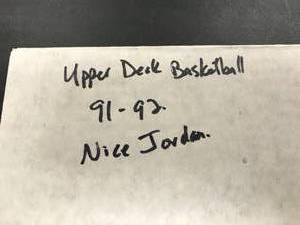 Upper Deck Basketball
91-92.
Nice Jordan.